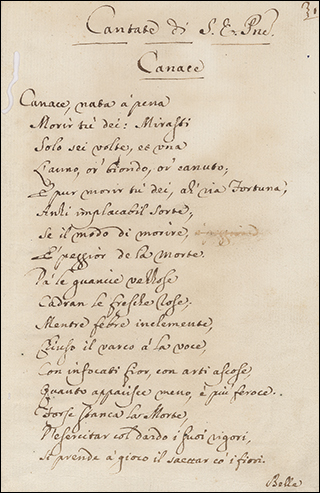 31
Cantate di S. E. Pne.
Canace
Canace, nata à pena
Morir tù dei: Mirasti
Solo sei volte, et una
L'anno, or' biondo, or' canuto,
E pur morir tù dei, ahi ria Fortuna,
Anzi implacabil sorte,
Se il modo di morire,
E' peggior de la Morte.
Già le guancie vezzose
Cadran le fresche rose,
Mentre febre inclemente,
Chiuso il varco à la voce,
Con infocati fior, con arti ascose,
Quanto apparisce meno, è più feroce.
Forse stanca la Morte,
D'esercitar col dardo i suoi vigori,
Si prende à gioco il saettar co' i fiori.
Belle